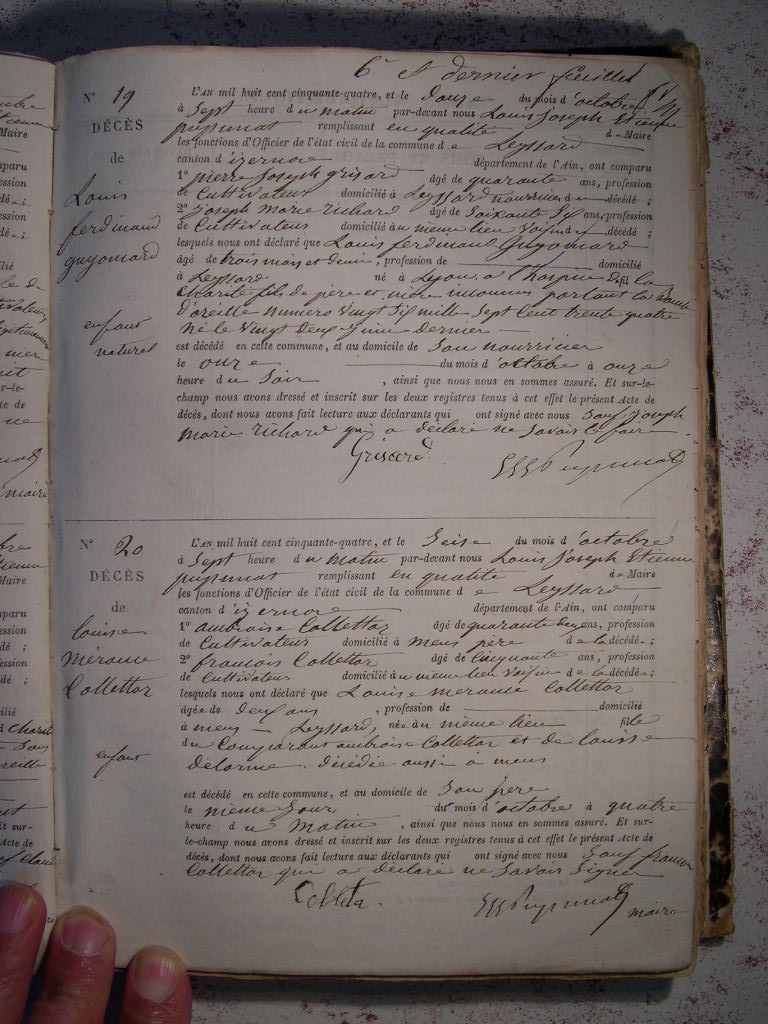 6e et dernier feuillet
N° 19
DÉCÈS
de
Louis
ferdinand
guyomard
enfant
naturel
L'AN mil huit cent cinquante-quatre, et le Douze du mois d'octobre
à Sept heure du matin par-devant nous Louis Joseph Etienne
puysunat remplissant en qualité de Maire
les fonctions d'Officier de l'état civil de la commune de Leyssard
canton d'izernore département de l'Ain, ont comparu
1° pierre Joseph grisard âgé de quarante ans, profession
de Cultivateur domicilié à Leyssard nourricier du décédé ;
2° Joseph Marie richard âgé de Soixante Six ans, profession
de Cultivateur domicilié au meme lieu Voisin du décédé ;
lesquels nous ont déclaré que Louis ferdinand Guyomard
âgé de trois mois et demi, profession de domicilié
à Leyssard né à Lyon a l'hospice de la fil
Charité fils de père et mère inconnus portant la Boucle
d'oreille numero Vingt Six mille Sept Cent trente quatre
né le Vingt Deux Juin dernier
est décédé en cette commune, et au domicile de Son nourricier
le onze du mois d'octobre à onze
heure du Soir , ainsi que nous nous en sommes assuré. Et sur-le-
champ nous avons dressé et inscrit sur les deux registres tenus à cet effet le présent Acte de
décès, dont nous avons fait lecture aux déclarants qui ont signé avec nous Sauf Joseph
Marie richard qui a déclaré ne Savoir le faire
Grisard
N° 20
DÉCÈS
de
louise
mérance
Collettaz
enfant
L'AN mil huit cent cinquante-quatre, et le Seise du mois d'octobre
à Sept heure du Matin par-devant nous Louis Joseph Etienne
puysunat remplissant en qualité de Maire
les fonctions d'Officier de l'état civil de la commune de Leyssard
canton d'izernore département de l'Ain, ont comparu
1° ambroise Collettaz âgé de quarante deux ans, profession
de Cultivateur domicilié à Mens père de la décédée ;
2° francois Collettaz âgé de Cinquante ans, profession
de Cultivateur domicilié au meme lieu Voisin de la décédée ;
lesquels nous ont déclaré que Louise merance Collettaz
âgée de deux ans , profession de domicilié
à mens Leyssard, née au même lieu fille
du Comparant ambroise Collettaz et de Louise
delorme . décédée aussi a mens
est décédé en cette commune, et au domicile de Son père
le même Jour du mois d'octobre à quatre
heure du Matin , ainsi que nous nous en sommes assuré. Et sur-
le-champ nous avons dressé et inscrit sur les deux registres tenus à cet effet le présent Acte de
décès, dont nous avons fait lecture aux déclarants qui ont signé avec nous Sauf francois
Collettaz qui a déclaré ne Savoir Signer
Colletta. maire